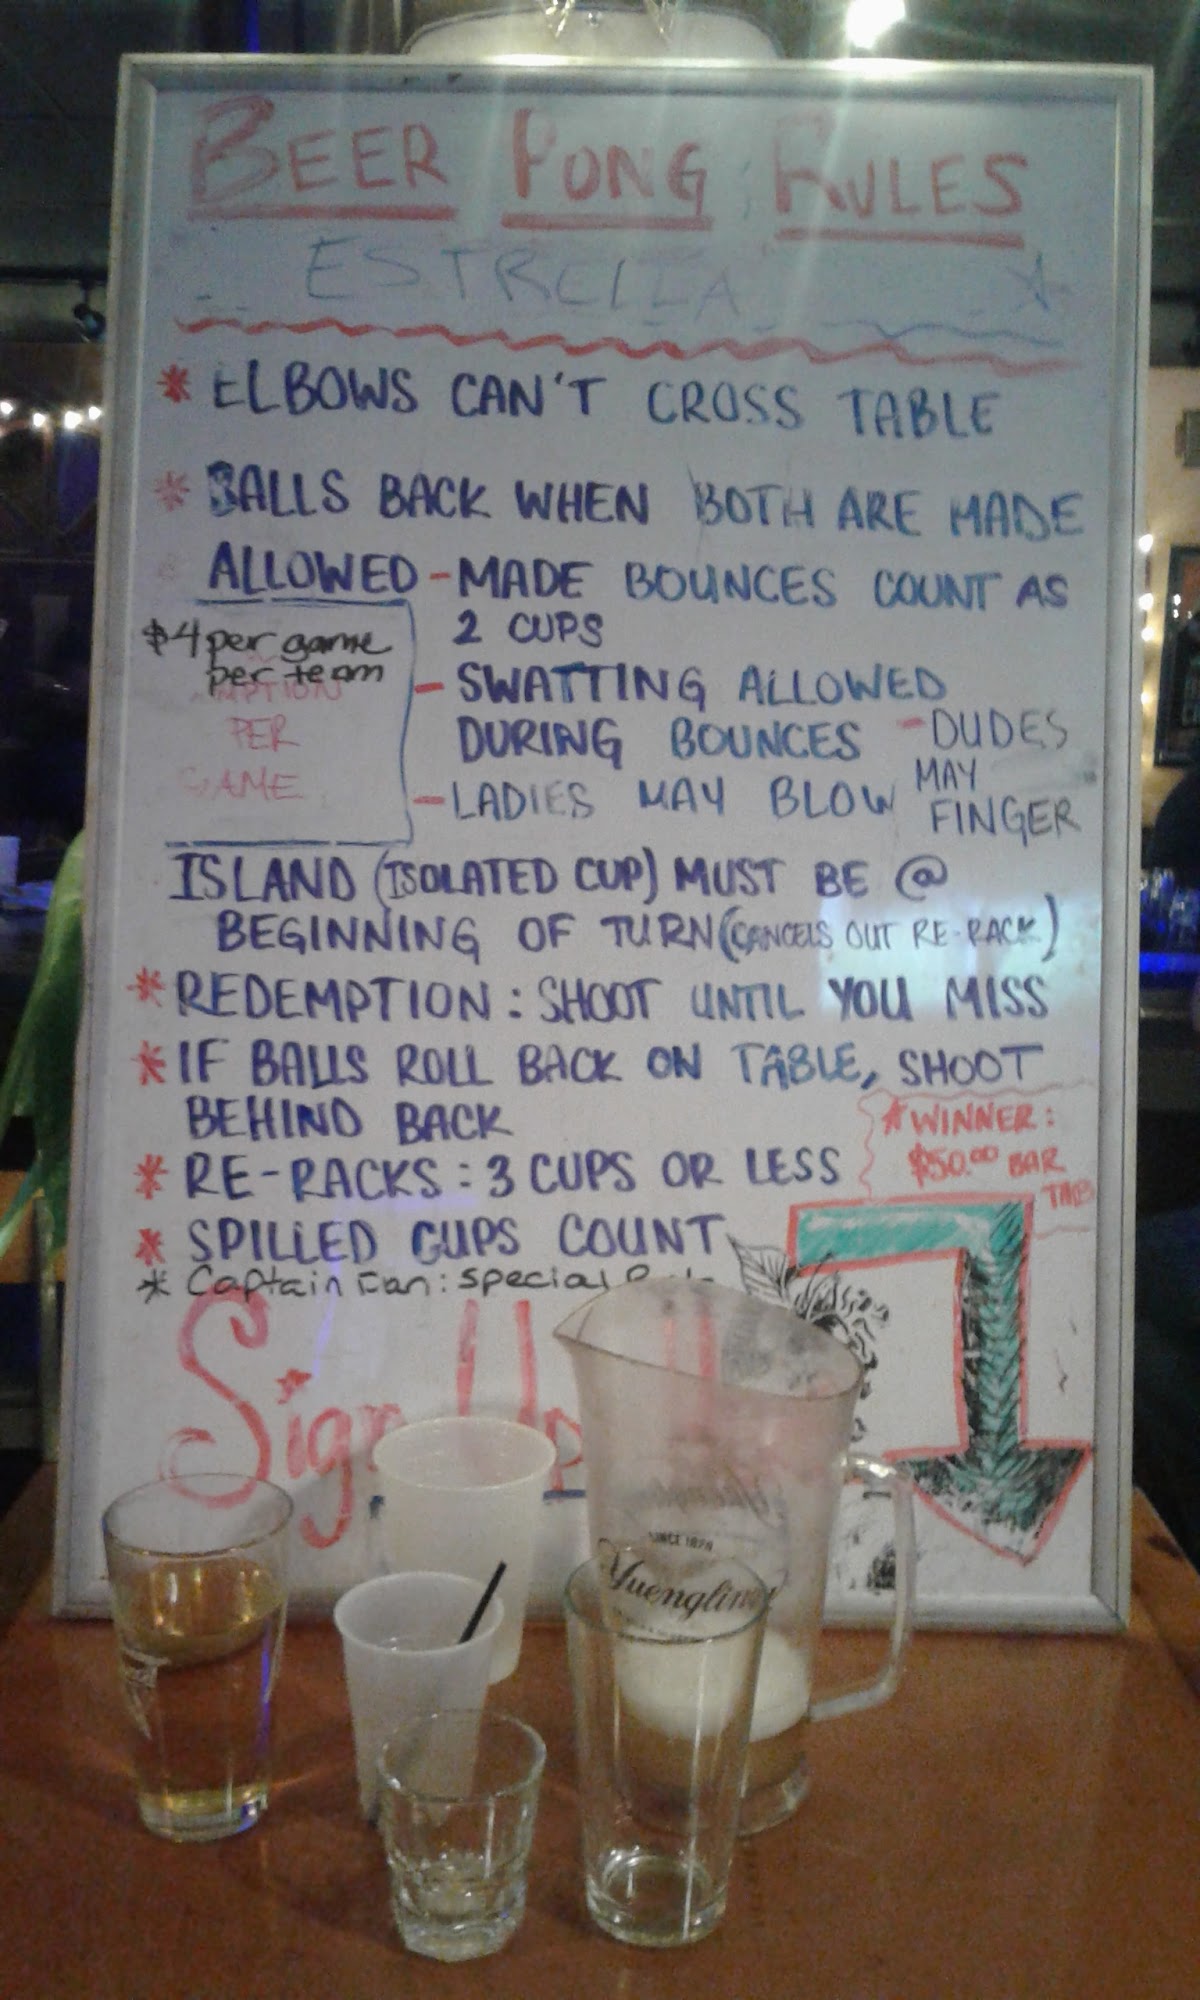 BEER PONG RULES
ESTRELLA
* ELBOWS CAN'T CROSS TABLE
* BALLS BACK WHEN BOTH ARE MADE
ALLOWED - MADE BOUNCES COUNT AS
2 CUPS
$4 per game
per team
MPTION
PER
GAME
- SWATTING ALLOWED
DURING BOUNCES
- LADIES MAY BLOW
- DUDES
MAY
FINGER
ISLAND (ISOLATED CUP) MUST BE @
BEGINNING OF TURN (CANCELS OUT RE-RACK)
* REDEMPTION: SHOOT UNTIL YOU MISS
* IF BALLS ROLL BACK ON TABLE, SHOOT
BEHIND BACK
* WINNER:
$50.00 BAR
TAB
* RE-RACKS: 3 CUPS OR LESS
* SPILLED CUPS COUNT
* Captain Dan: Special
Sign Up
SINCE 1829
Yuengling